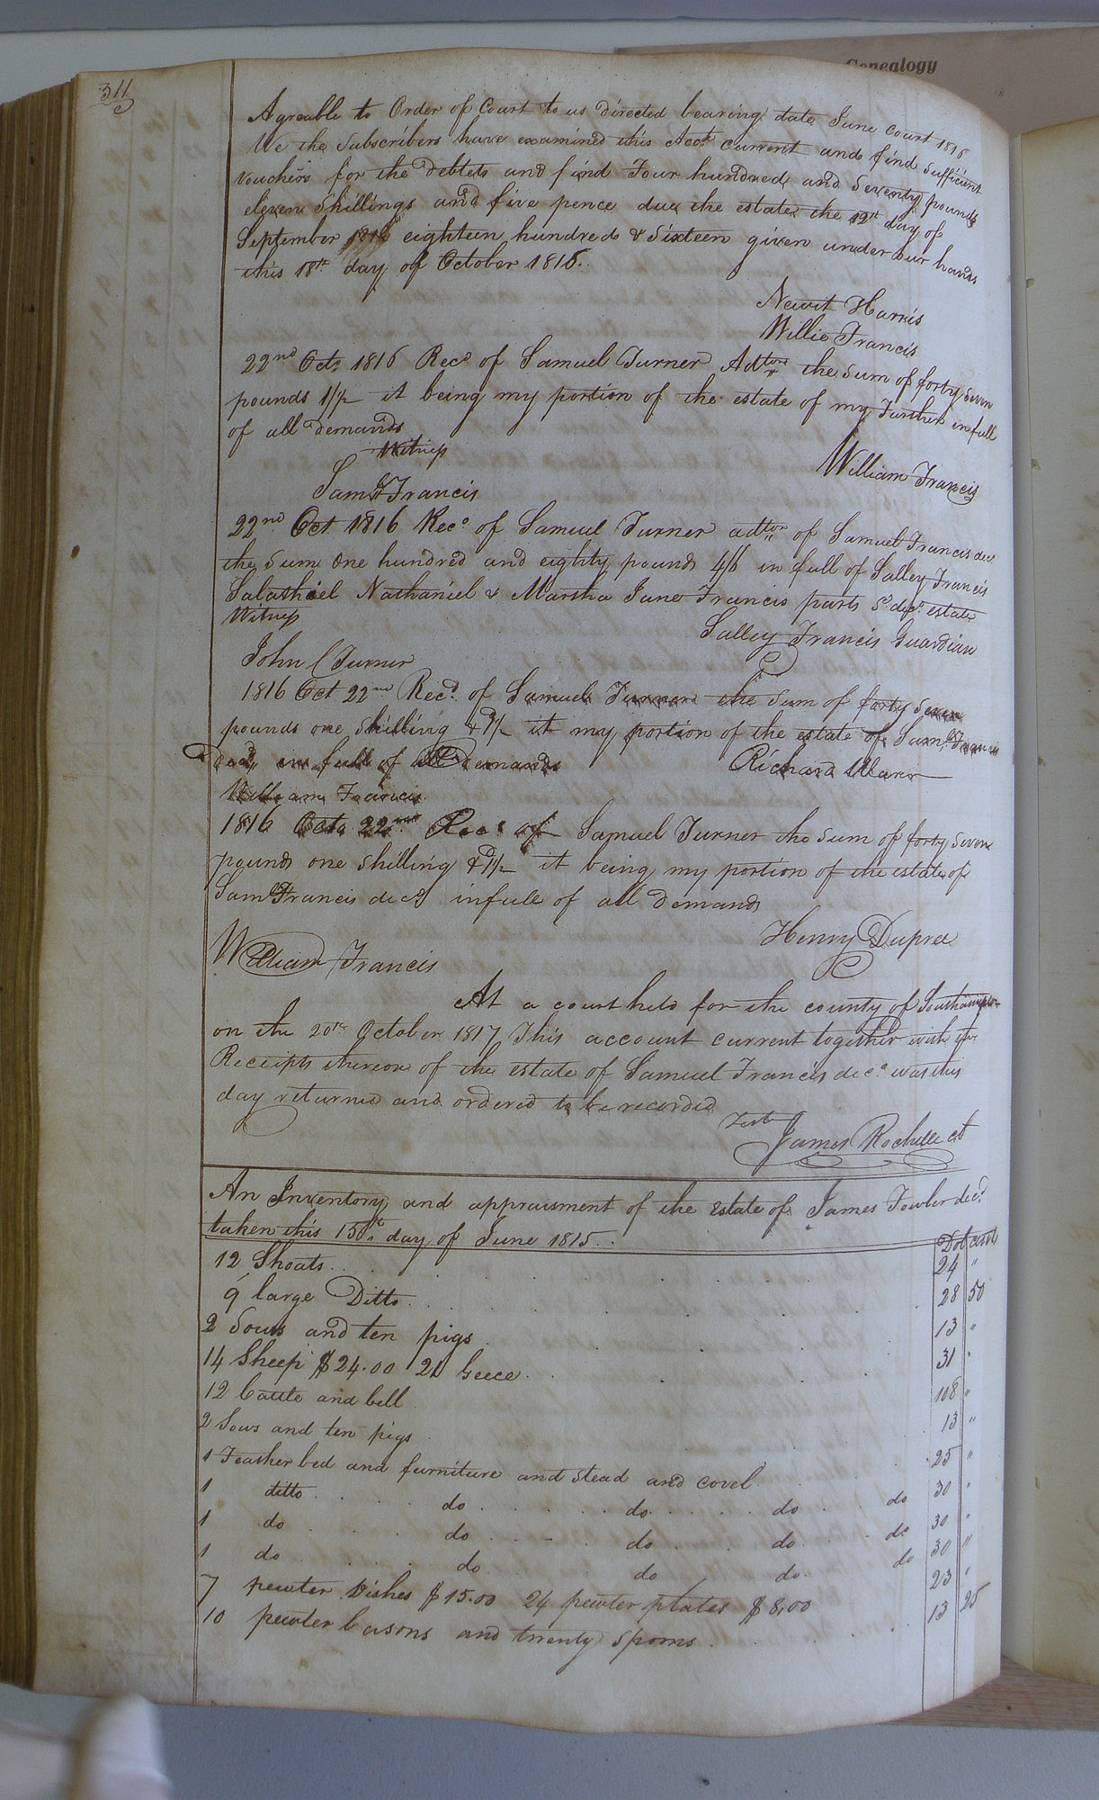 Genealogy
311
Agreable to Order of Court to us directed bearing date June Court 1816
We the Subscribers have examined this Acct current and find sufficient
vouchers for the debtets and find Four hundred and Seventy pounds
eleven Shillings and five pence due the estate the 12th day of
September 1816 eighteen hundred & Sixteen given under our hands
this 18th day of October 1816.
Newit Harris
Willie Francis
22nd Octr 1816 Recd of Samuel Turner Adtor the sum of forty seven
pounds 1/1/2 it being my portion of the estate of my Farther in full
of all demands
Witness
William Francis
Saml Francis
22nd Oct 1816 Recd of Samuel Turner adtor of Samuel Francis decd
the sum One hundred and eighty pounds 4/6 in full of Salley Francis
Salathiel Nathaniel & Martha Jane Francis parts Sd decd estate
Witness
Salley Francis Guardian
John C Turner
1816 Oct 22nd Recd of Samuel Turner the sum of forty seven
pounds one shilling & d 1/2 it my portion of the estate of Saml Francis
Decd in full of all Demands
Richard Ware
William Francis
1816 Octo 22nd Recd of Samuel Turner the sum of forty seven
pounds one shilling & d 1/2 it being my portion of the estate of
Saml Francis decd in full of all Demands
Henry Dupree
William Francis
At a court held for the county of Southampton
on the 20th October 1817 This account current together with the
Receipts thereon of the estate of Samuel Francis decd was this
day returned and ordered to be recorded
Test
James Rochelle ct
An Inventory and appraisment of the Estate of James Fowler decd
taken this 15th day of June 1815.
Dol cent
12 Shoats 24 "
9 large Ditto 28 50
2 Sows and ten pigs 13 "
14 Sheep $24.00 21 Geece 31 "
12 Cattle and bell 108 "
2 Sows and ten pigs 13 "
1 Feather bed and furniture and stead and covel 25 "
1 ditto do do do do 30 "
1 do do do do do 30 "
1 do do do do do 30 "
7 pewter Dishes $15.00 24 pewter plates $8,00 23 "
10 pewter basons and twenty spoons 13 25